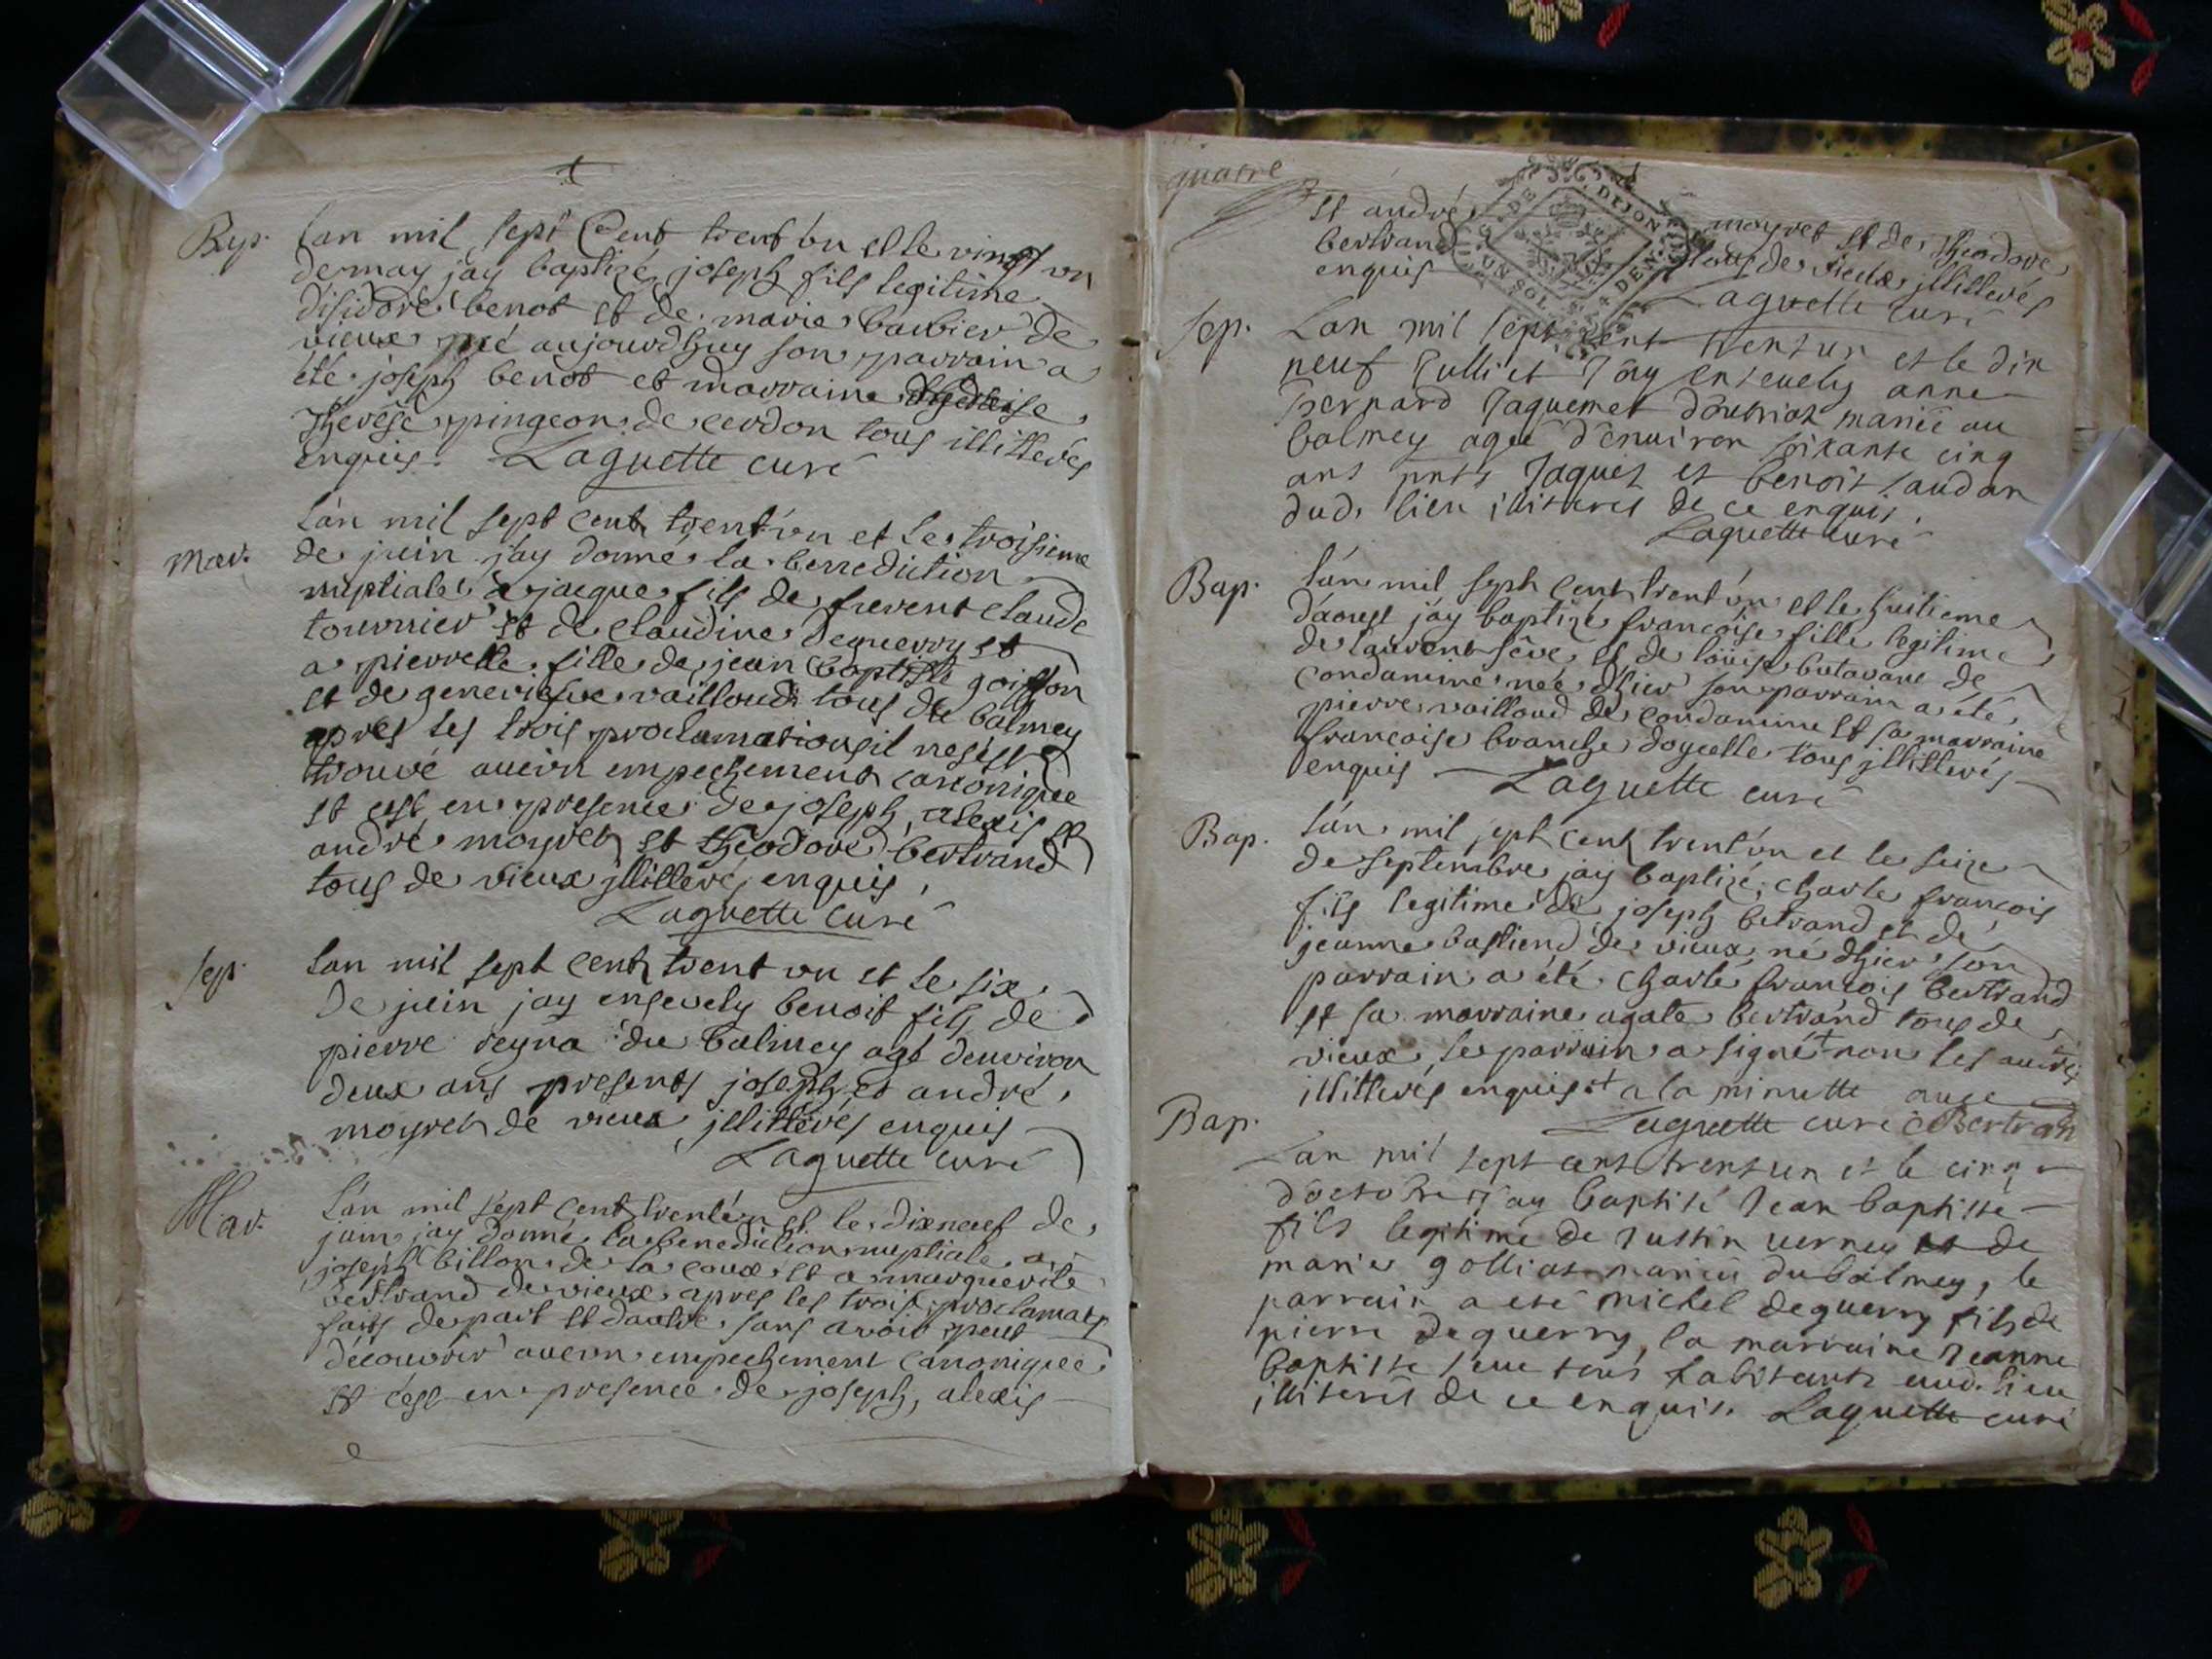 Bap. Lan mil sept Cent trent'un et le vingt un
de may jay baptizé joseph fils legitime
disidore benot et de marie barbier de
vieux né aujourdhuy son parrain a
été joseph benot et marraine
therese pingeon de cerdon tous illitterés
enquis. Laguette curé
Mar. Lan mil sept cent trent'un et le troisieme
de juin j'ay donné la benediction
nuptiale a jacque fils de fuevent Claude
tournier et de claudine deguerry et
a pierrette fille de jean baptiste goiffon
et de genevieve vailloud tous du balmey
apres les trois proclamations il ne s'est
trouvé aucun empechement canonique
et cest en presence de joseph, alexis et
andré moyret et theodore bertrand
tous de vieux jllitterés enquis,
Laguette Curé
Sep. Lan mil sept cent trent un et le six
de juin jay ensevely benoit fils de
pierre reyna du balmey agé denviron
deux ans presents joseph et andré
moyret de vieux jllitterés enquis
Laguette curé
Mar. Lan mil sept cent trent'un et le dixneuf de
juin jay donné la benediction nuptiale a
joseph billon de la coux et a marguerite
bertrand de vieux apres les trois proclamats
faits de part et dautre sans avoir peut
découvrir aucun empechement canonique
et c'est en presence de joseph, alexis
quatre
et andré moyret et de theodore
bertrand tous de vieux jllitterés
enquis Laguette curé
G. DE DIJON
UN SOL 4 DEN.
Sep. Lan mil sept cent trent un et le dix
neuf Julliet J'ay ensevely anne
bernard Jaquemet d'outriaz mariée au
balmey agée d'environ soixante cinq
ans pnts Jaques et benoit laudan
dud. lieu illiteres de ce enquis.
Laguette curé
Bap. lán mil sept cent trent'un et le huitieme
d'aoust j'ay baptizé francoise fille legitime
de laurent séve et de loüise butavane de
condamine née dhier son parrain a été
pierre vailloud de condamine et sa marraine
francoise branche doyselle tous jllitterés
enquis Laguette curé
Bap. lán mil sept cent trent'un et le seize
de septembre jay baptizé Charle francois
fils legitime de joseph bertrand et de
jeanne bastiend de vieux né dhier son
parrain a été Charle francois bertrand
et sa marraine agate bertrand tous de
vieux, le parrain a signé + non les autres
illitterés enquis + a la minutte avec
Laguette curé C Bertran
Bap. Lan mil sept cent trent un et le cinq
d'octobre J'ay baptisé Jean baptiste
fils legitime de Justin verney et de
marie golliat mariés du balmey, le
parrain a eté michel deguerry fils de
pierre deguerry, la marraine Jeanne
baptiste seve tous habitants aud. lieu
illiterés de ce enquis. Laguette curé